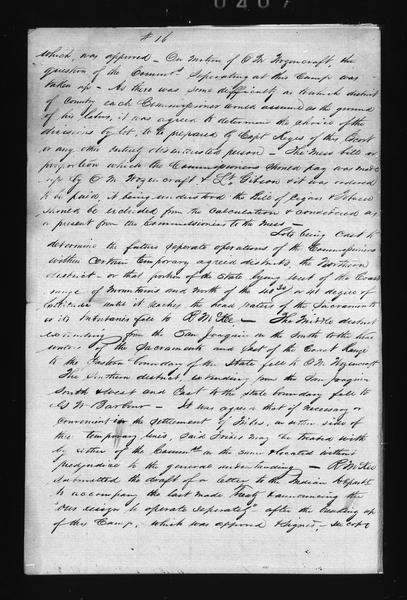 # 16
which, was approved - On Motion of O M Wozencraft, the
question of the Commrs Seperating at this Camp was
taken up - As there was some difficulty as to which district
of Country each Commissioner would assume as the ground
of his labors, it was agreed to determine the choice of the
divisions by lot, to be prepared by Capt Keyes of the Escort
or any other entirely disinterested person - The Mess bill or
proportion which the Commissioners should pay was made
up by O M Wozencraft & Lt Gibson & it was ordered
to be paid, it being understood the bill of Cigars & Tobacco
should be excluded from the Calculation & considered as
a present from the Commissioners to the Mess -
Lots being Cast to
determine the future seperate operations of the Commissioners
within certain temporary agreed districts, the Northern
district - or that portion of the State lying west of the Coast
range of Mountains and North of the degree of
latitude until it reaches the head waters of the Sacramento
& its tributaries fell to R McKee - The Middle district
extending from the San Joaquin on the South to the head
waters of the Sacramento and East of the Coast Range
to the Eastern boundary of the State fell to O M Wozencraft
The Southern district, extending from the San Joaquin
South & West and East to the State boundary fell to
G W Barbour - It was agreed that if necessary or
convenient in the settlement of Tribes, on either side of
this temporary lines, Said Tribes may be treated with
by either of the Commrs on the same & located without
predjudice to the general understanding - R McKee
submitted the draft of a letter to the Indian Depart
to accompany the last made Treaty & announcing the
"our design to operate seperately" after the breaking up
of this Camp, which was approved & signed,